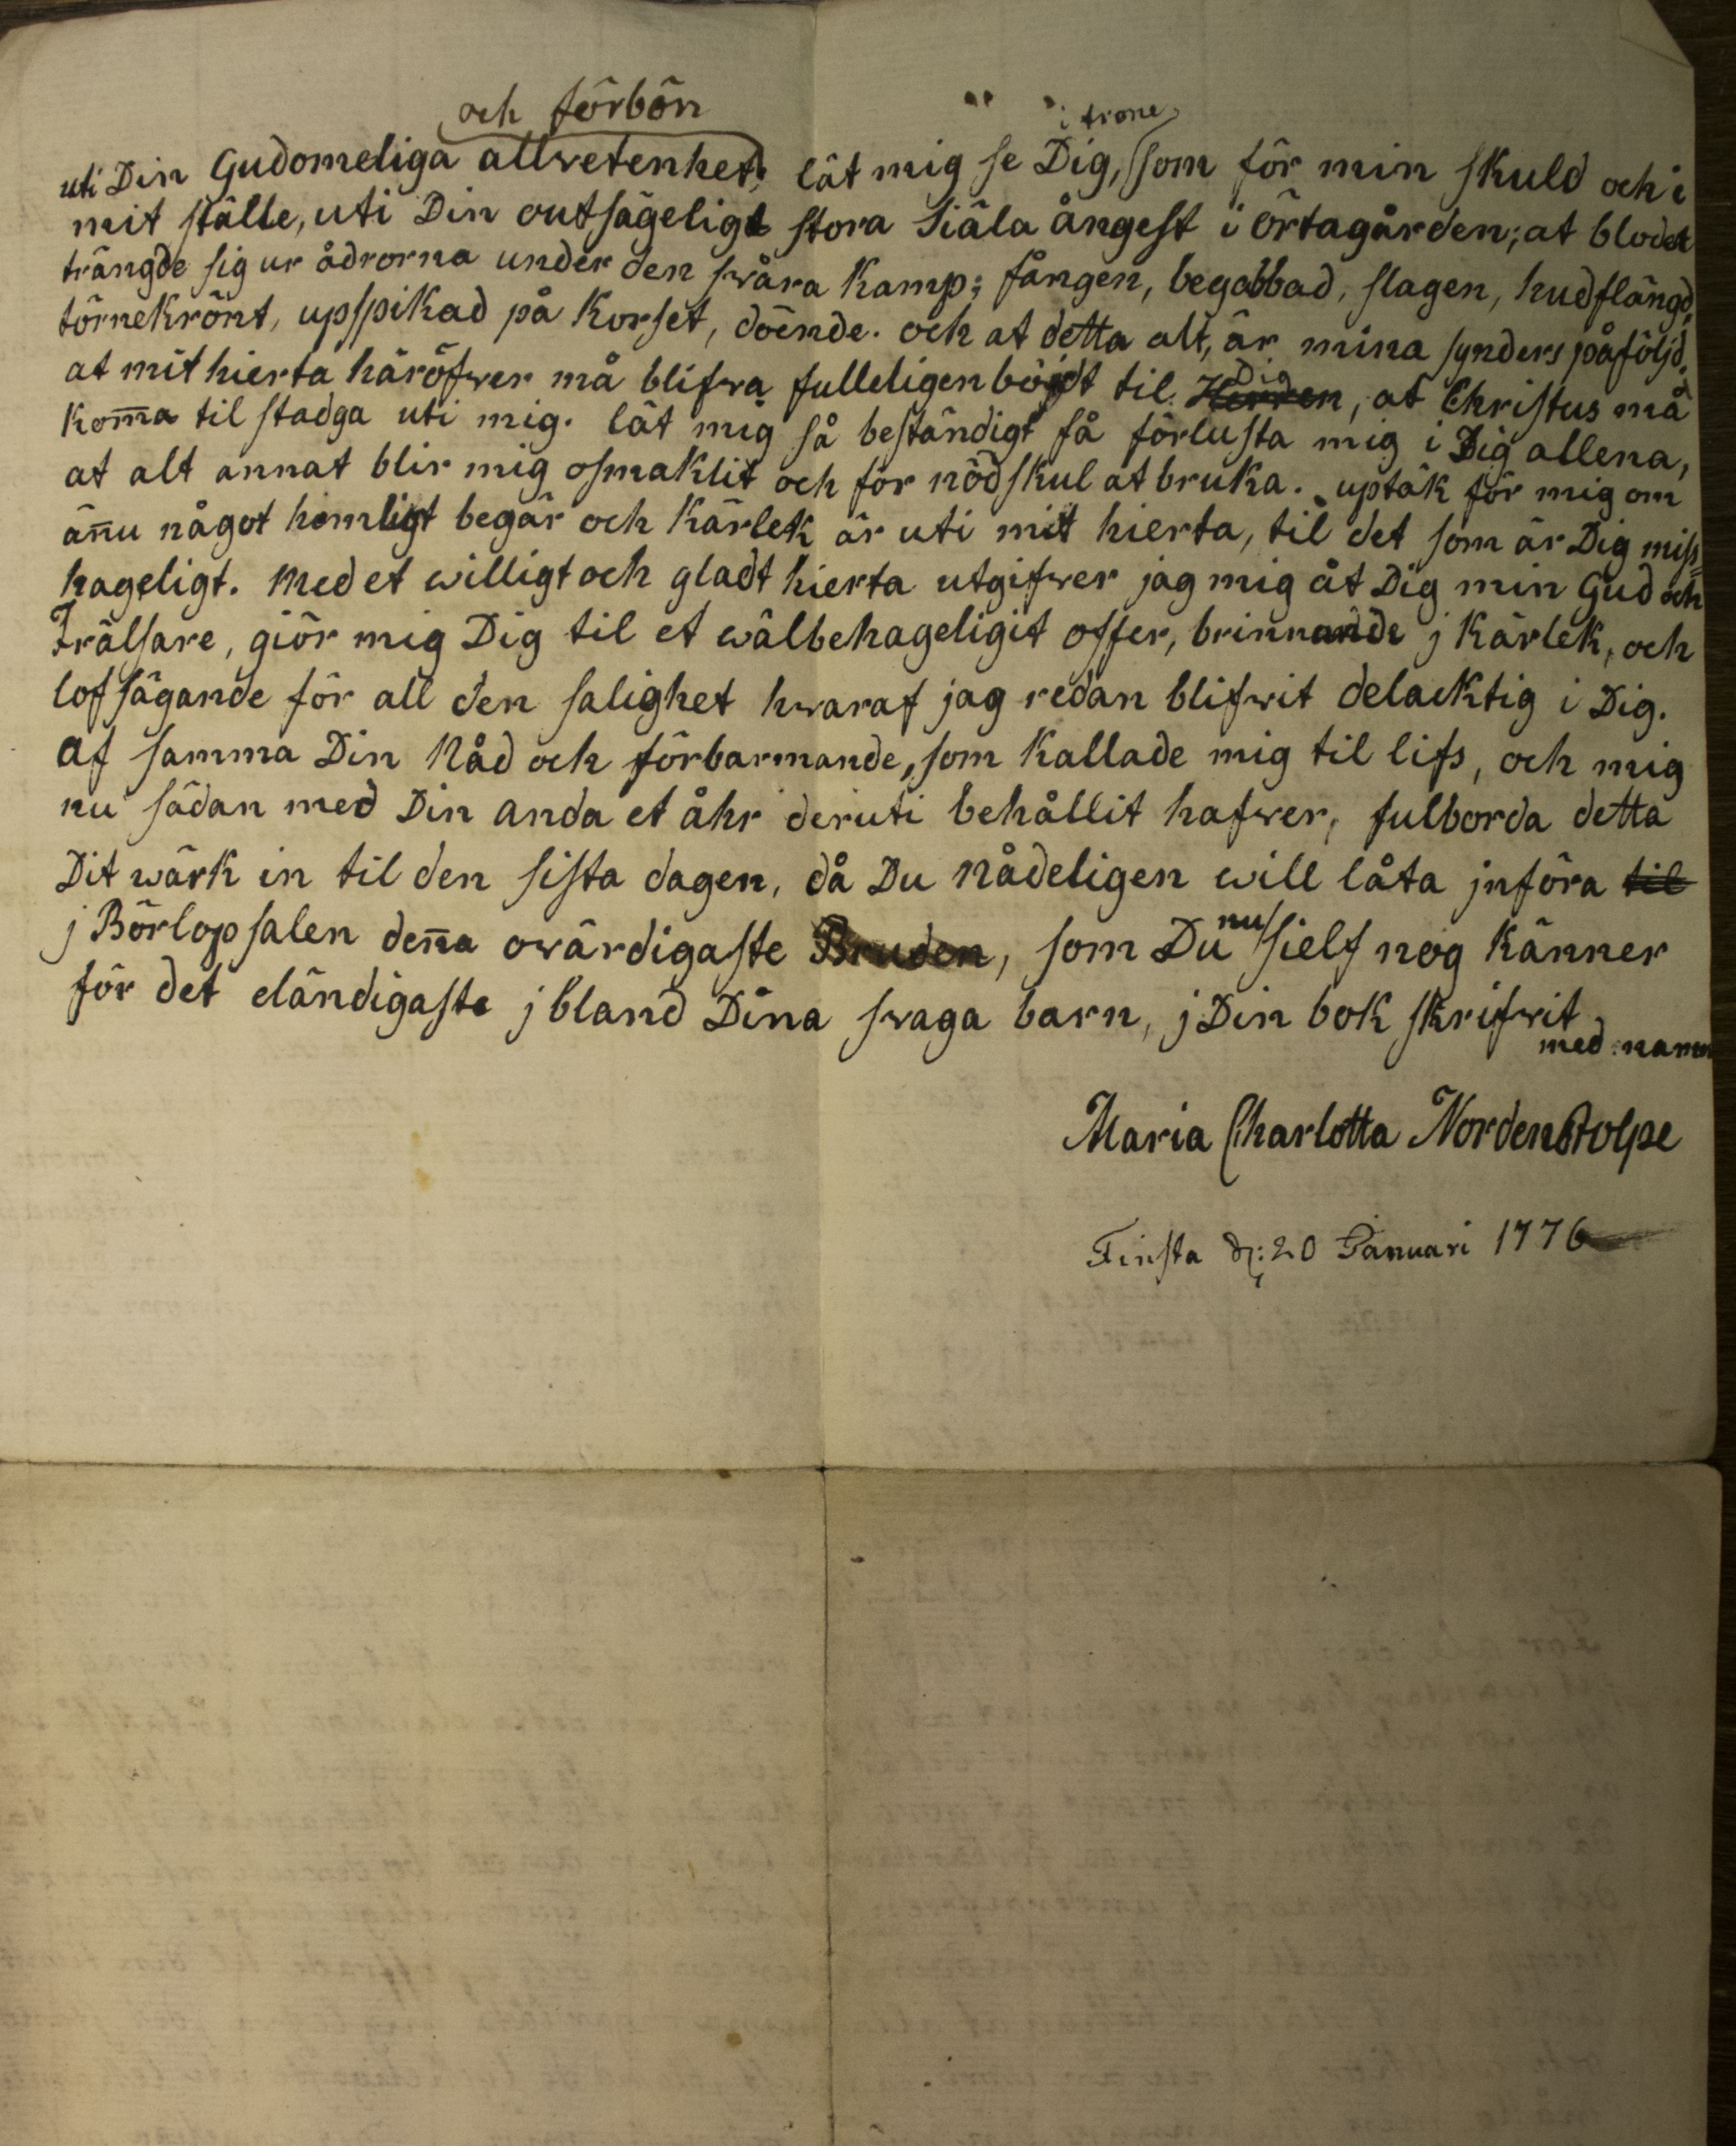 och förbön
i trone
uti Din Gudomeliga allvetenhet; låt mig se Dig, som för min skuld och i
mit ställe, uti Din outsägeligt stora Siäla ångest i örtagården; at blodet
trängde sig ur ådrorna under den swåra Kamp; fången, begabbad, slagen, hudflängd,
törnekrönt, upspikad på Korset, döende. och at detta alt, är mina synders påföljd,
at mit hierta häröfwer må blifwa fulleligen böjdt til Dig Herren, at Christus må
kom̄a til stadga uti mig. låt mig så beständigt få förlusta mig i Dig allena,
at alt annat blir mig osmaklit och för nödskul at bruka. uptäk för mig om
än̄u något hemligt begär och kärlek är uti mit hierta, til det som är Dig miss=
hageligt. Med et willigt och gladt hierta utgifwer jag mig åt Dig min Gud och
Frälsare, giör mig Dig til et wälbehageligit offer, brinnande j Kärlek, och
lofsägande för all den salighet hwaraf jag redan blifwit delacktig i Dig.
Af samma Din Nåd och förbarmande, som Kallade mig til lifs, och mig
nu sädan med Din anda et åhr deruti behållit hafwer, fulborda detta
Dit wärk in til den sista dagen, då Du Nådeligen will låta jnföra til
j Börlopsalen den̄a owärdigaste Bruden, som Du nu sielf nog Känner
för det eländigaste j bland Dina swaga barn, j Din bok skrifwit
med namn
Maria Charlotta Nordenstolpe
Finsta d: 20 Januari 1776